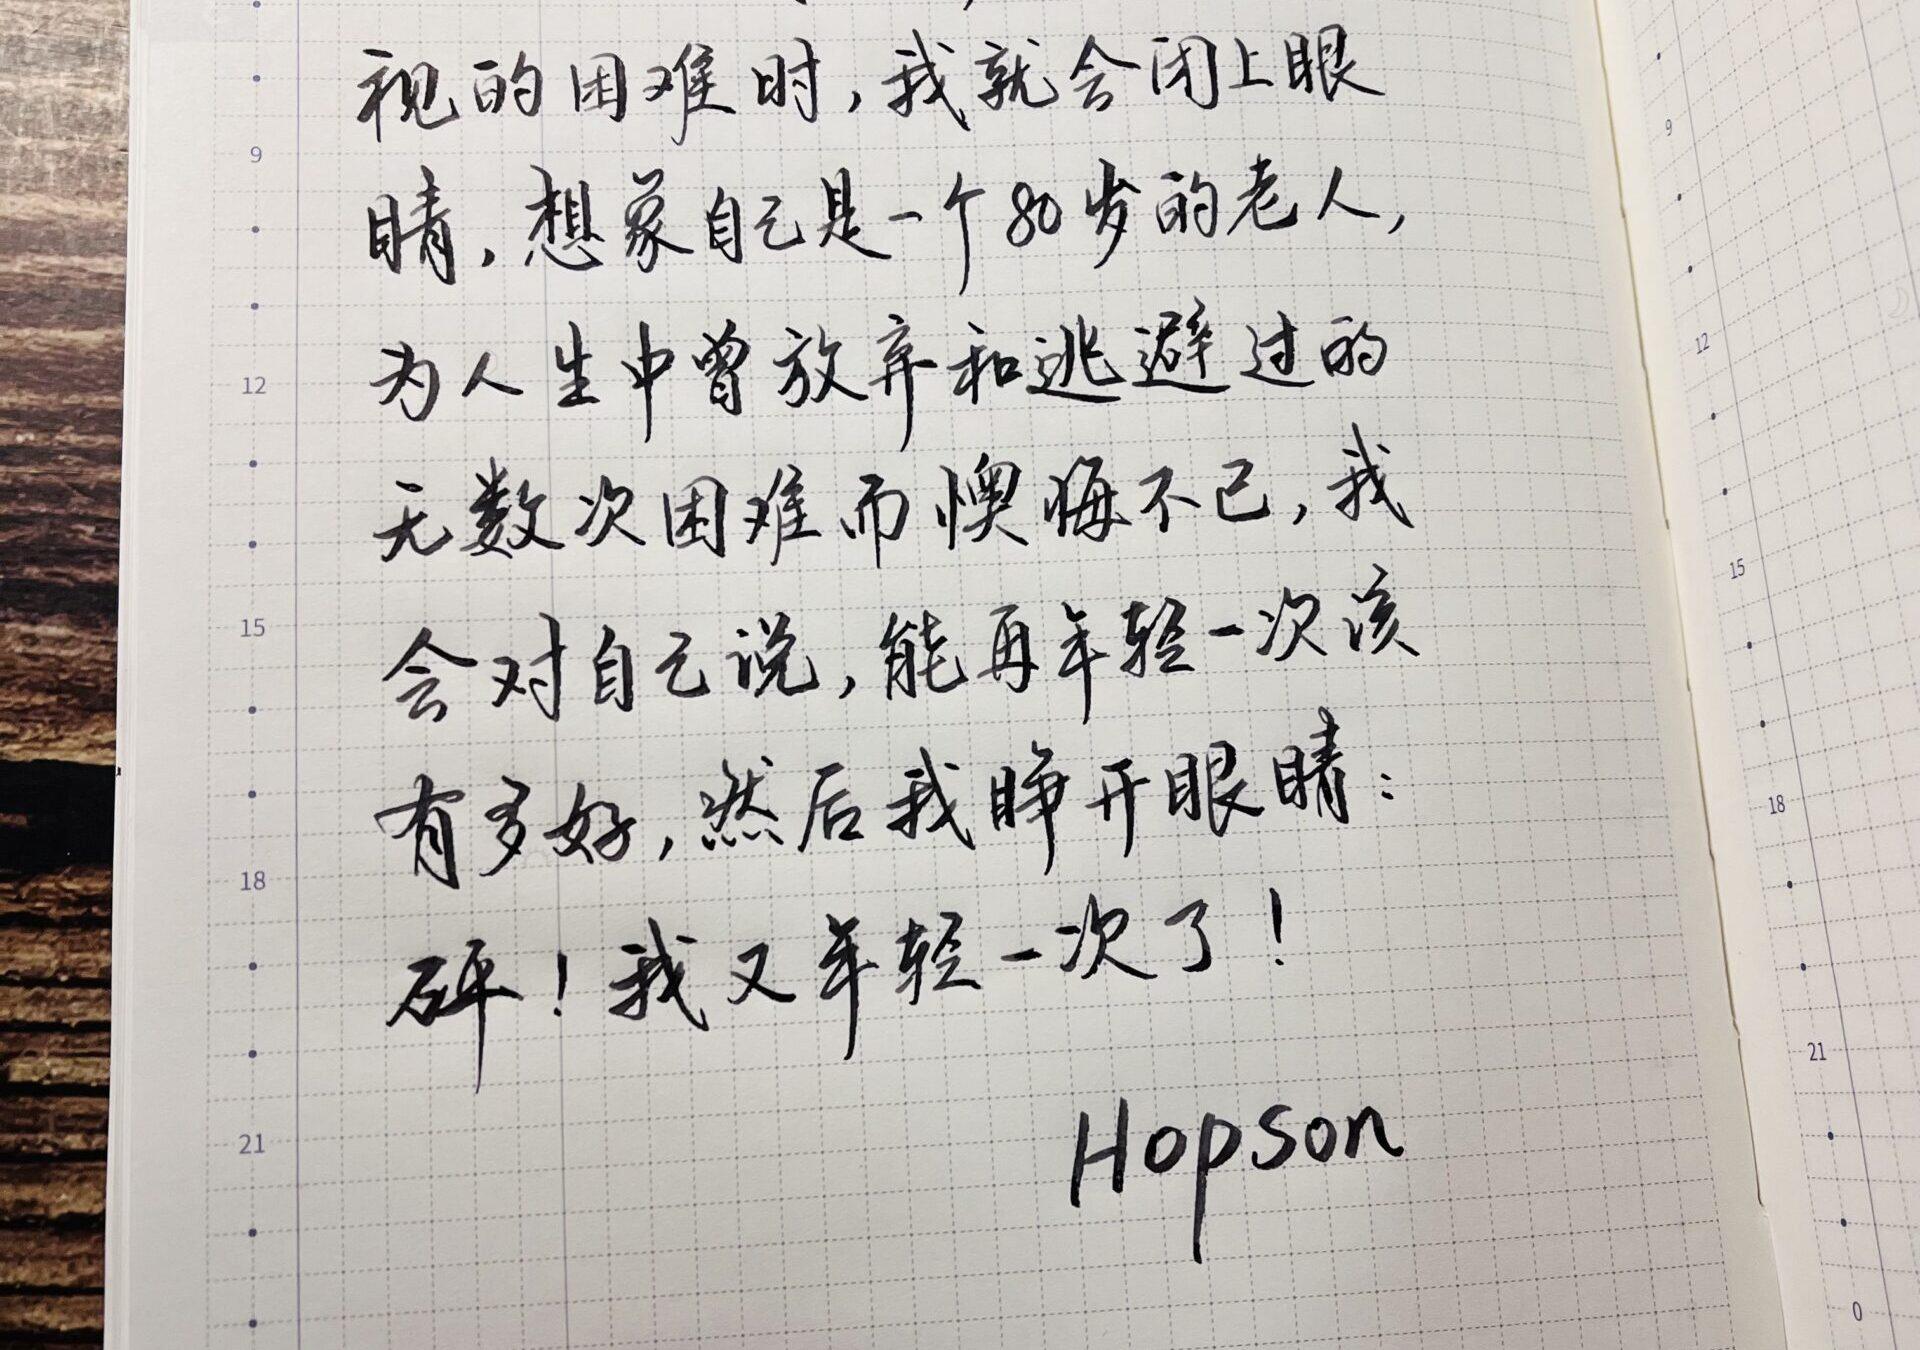 视的困难时，我就会闭上眼
9
9
睛，想象自己是一个80岁的老人，
为人生中曾放弃和逃避过的
12
12
无数次困难而懊悔不已，我
会对自己说，能再年轻一次该
15
15
有多好，然后我睁开眼睛：
18
18
砰！我又年轻一次了！
Hopson
21
21
0